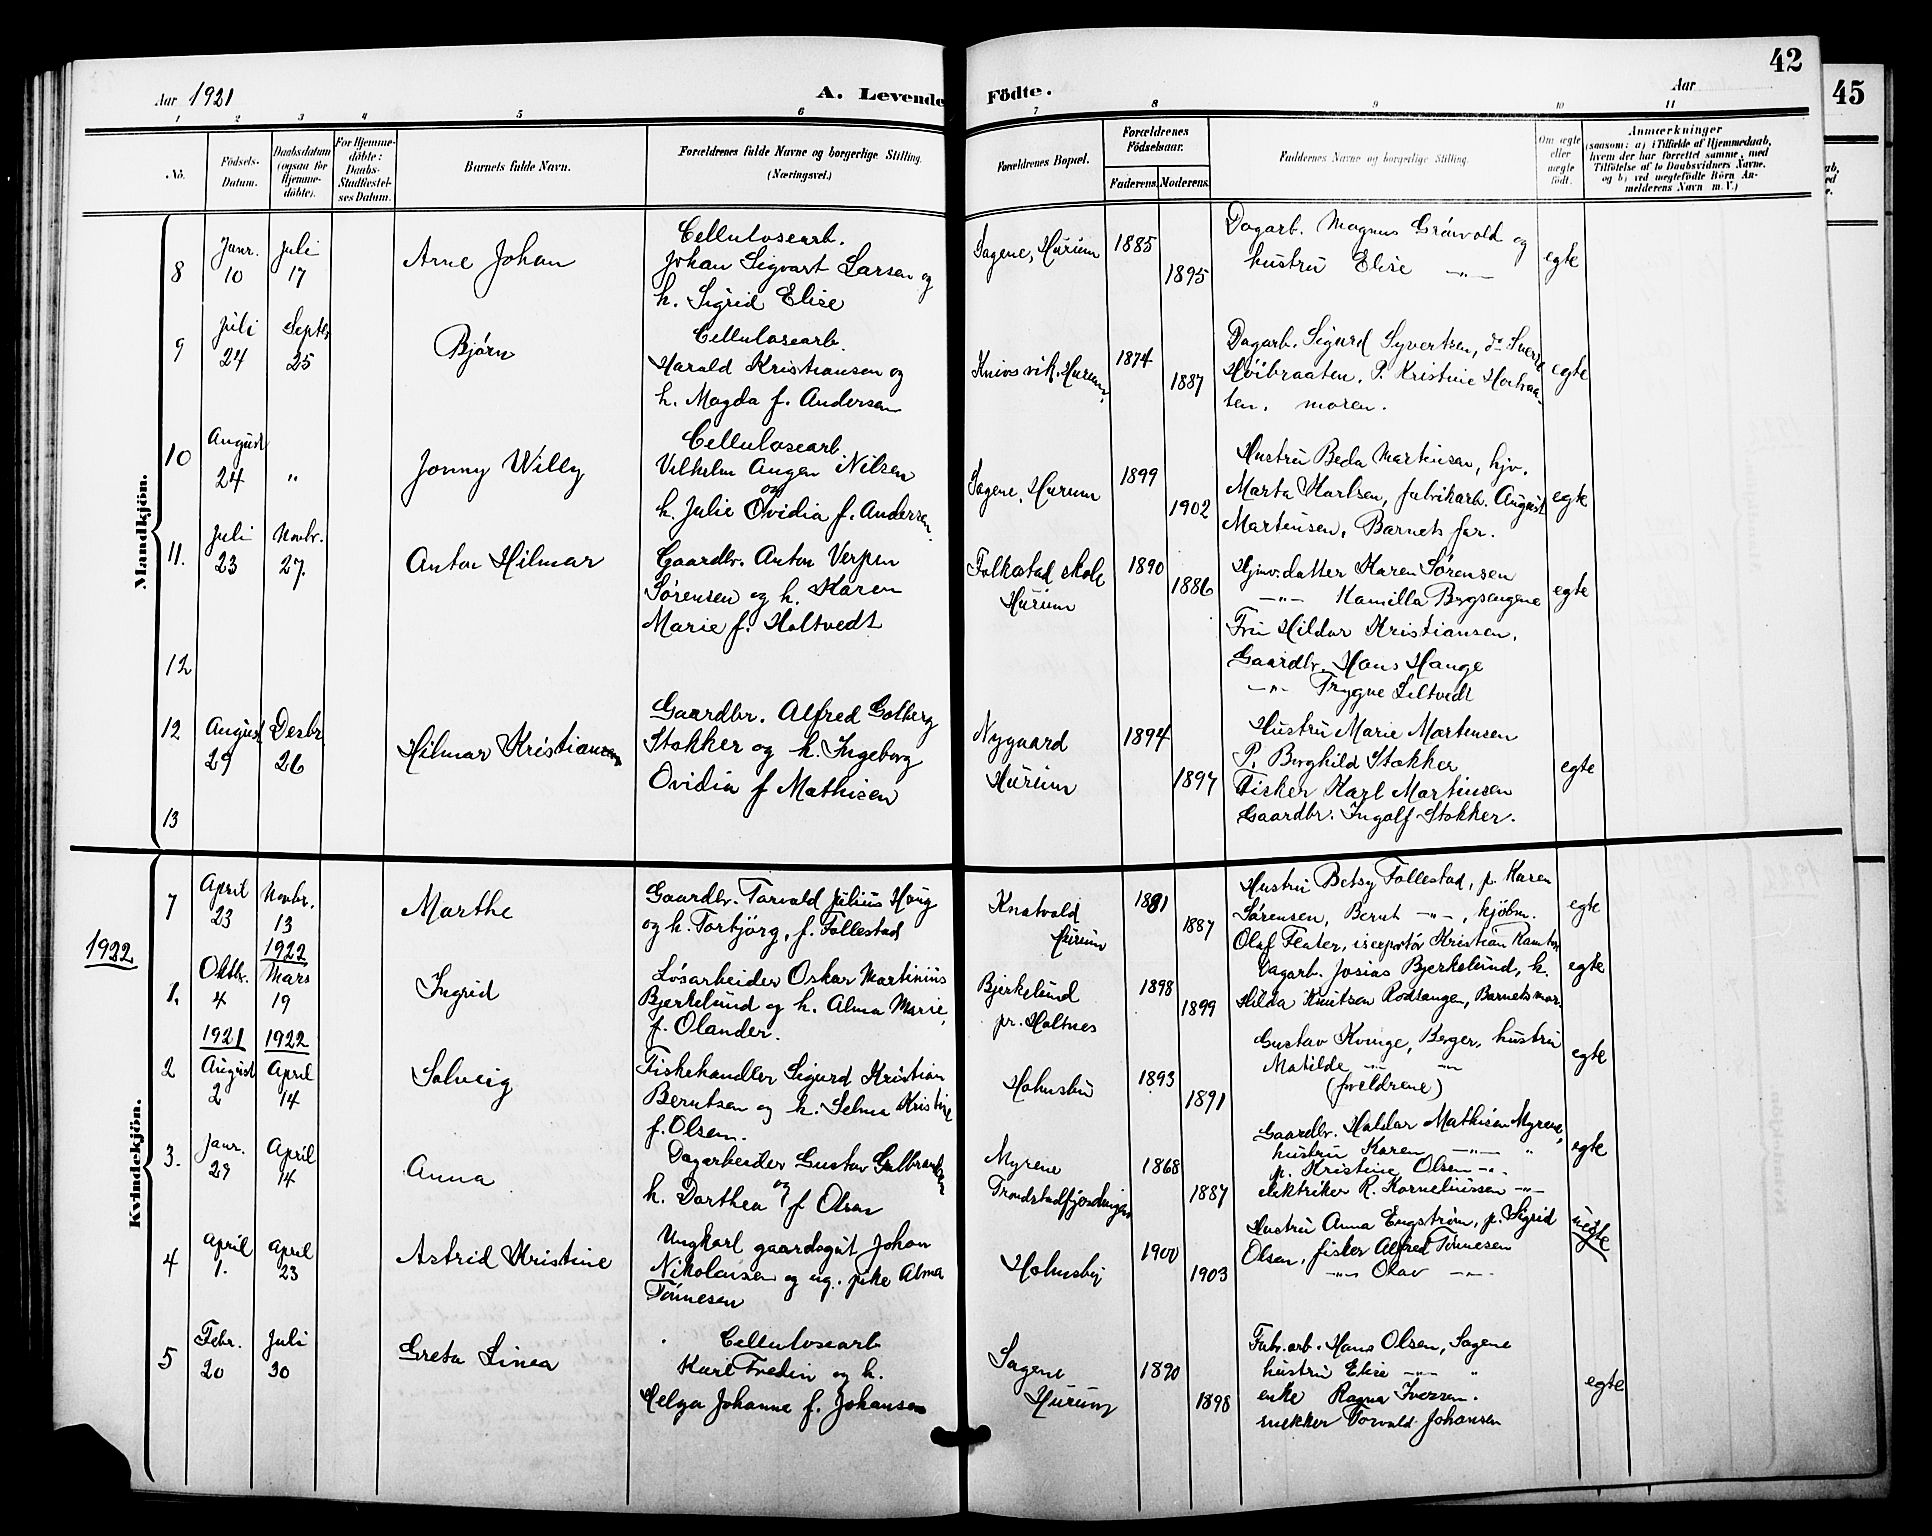 42
45
Aar 1921
A. Levende Födte.
Aar
1 2 3 4 5 6 7 8 9 10 11
No.
Födsels-Datum.
Daabsdatum (ogsaa for Hjemme-döbte).
For Hjemme-döbte: Daabs-Stadfæstel-ses Datum.
Barnets fulde Navn.
Forældrenes fulde Navne og borgerlige Stilling. (Næringsvei.)
Forældrenes Bopæl.
Forældrenes Födselsaar.
Faderens.
Moderens.
Faddernes Navne og borgerlige Stilling.
Om ægte eller uægte født.
Anmærkninger
(saasom: a) i Tilfælde af Hjemmedaab,
hvem der har forrettet samme, med
Tilföielse af to Daabsvidners Navne,
og b) ved uægtefödte Börn An-
melderens Navn m. V.)
Mandkjön.
8 Janr. 10 Juli 17
Arne Johan
Cellulosearb.
Johan Sigvart Larsen og
h. Sigrid Elise
Sagene, Hurum 1885 1895
Dagarb. Magnus Grønvold og
hustru Elise -"-
egte
9 Juli 24 Septbr 25
Bjørn
Cellulosearb.
Harald Kristiansen og
h. Magda f. Andersen
Knivsvik, Hurum, 1874 1887
Dagarb. Sigurd Syvertsen, do Sverre
Høibraaten. P. Kristine Hovbraa-
ten. moren.
egte
10 August 24 "
Jonny Willy
Cellulosearb.
Vilhelm Angar Nilsen
og
h. Julie Ovidia f. Andersen.
Sagene, Hurum 1899 1902
Hustru Beda Martinsen, hjv.
Marta Karlsen, fabrikarb. August
Martinsen, Barnets far.
egte
11. Juli 23 Novbr. 27.
Anton Hilmar
Gaardbr. Anton Verpen
Sørensen og h. Karen
Marie f. Holtvedt
Folkestad skole
Hurum 1890 1886
Hjmv. datter Karen Sørensen
-"- Kamilla Bergsengene
Fru Hildur Kristiansen.
Gaardbr. Hans Hauge
-"- Trygve Liltvedt
egte
12
12 August 29 Desbr. 26
Hilmar Kristiansen
Gaardbr. Alfred Solberg
Stokker og h. Ingeborg
Ovidia f Mathisen
Nygaard
Hurum 1894 1897
Hustru Marie Martinsen
P. Borghild Stokker
Fisker Karl Martinsen
Gaardbr. Ingolf Stokker.
egte
13
Kvindekjön.
7 April 23 Novbr. 13
Marthe
Gaardbr. Torvald Julius Haug
og h. Torbjörg, f. Follestad
Knatvold
Hurum 1881 1887
Hustru Betsy Follestad, p. Karen
Sørensen, Bernt -"-, kjøbm.
Olaf Flater, isexportør Kristian Ramton
egte
1922
1922
1. Oktbr. 4 Mars 19
Ingrid
Løsarbeider Oskar Martinius
Bjerkelund og h. Alma Marie,
f. Olander.
Bjerkelund
pr. Holtnes 1898 1899
Dagarb. Josias Bjerkelund, h.
Hilda Knutsen Rødsengen, Barnets mor.
egte
1921 1922
2 August 2 April 14
Solveig
Fiskehandler Sigurd Kristian
Berntsen og h. Selma Kristine
f. Olsen.
Holmsbu 1893 1891
Gustav Kvinge, Berger, hustru
Matilde -"- -"-
(foreldrene)
egte
3. Janr. 29 April 14
Anna
Dagarbeider Gustav Gulbrandsen
og
h. Dorthea f Olsen
Myrene
1868 1887
Gaardbr. Haldor Mathisen Myrene,
hustru Karen -"- "
p. Kristine Olsen -"-
elektriker R. Korneliussen -"-
egte
4 April 1. April 23
Astrid Kristine
Ungkarl gaardsgut Johan
Nikolaisen og ug. pike Alma
Tønnesen
Holmsby 1900 1903
Hustru Anna Engstrøm, p. Sigrid
Olsen, fisker Alfred Tønnesen
-"- Olav -"-
uegte
5 Febr. 20 Juli 30
Greta Linea
Cellulosearb
Karl Fredin og h.
Helga Johanne f. Johansen
Sagene
Hurum 1890 1898
Fabr. arb. Hans Olsen, Sagene
hustru Elise -"- "
enke Ragna Iversen.
snekker Torvald Johansen
egte